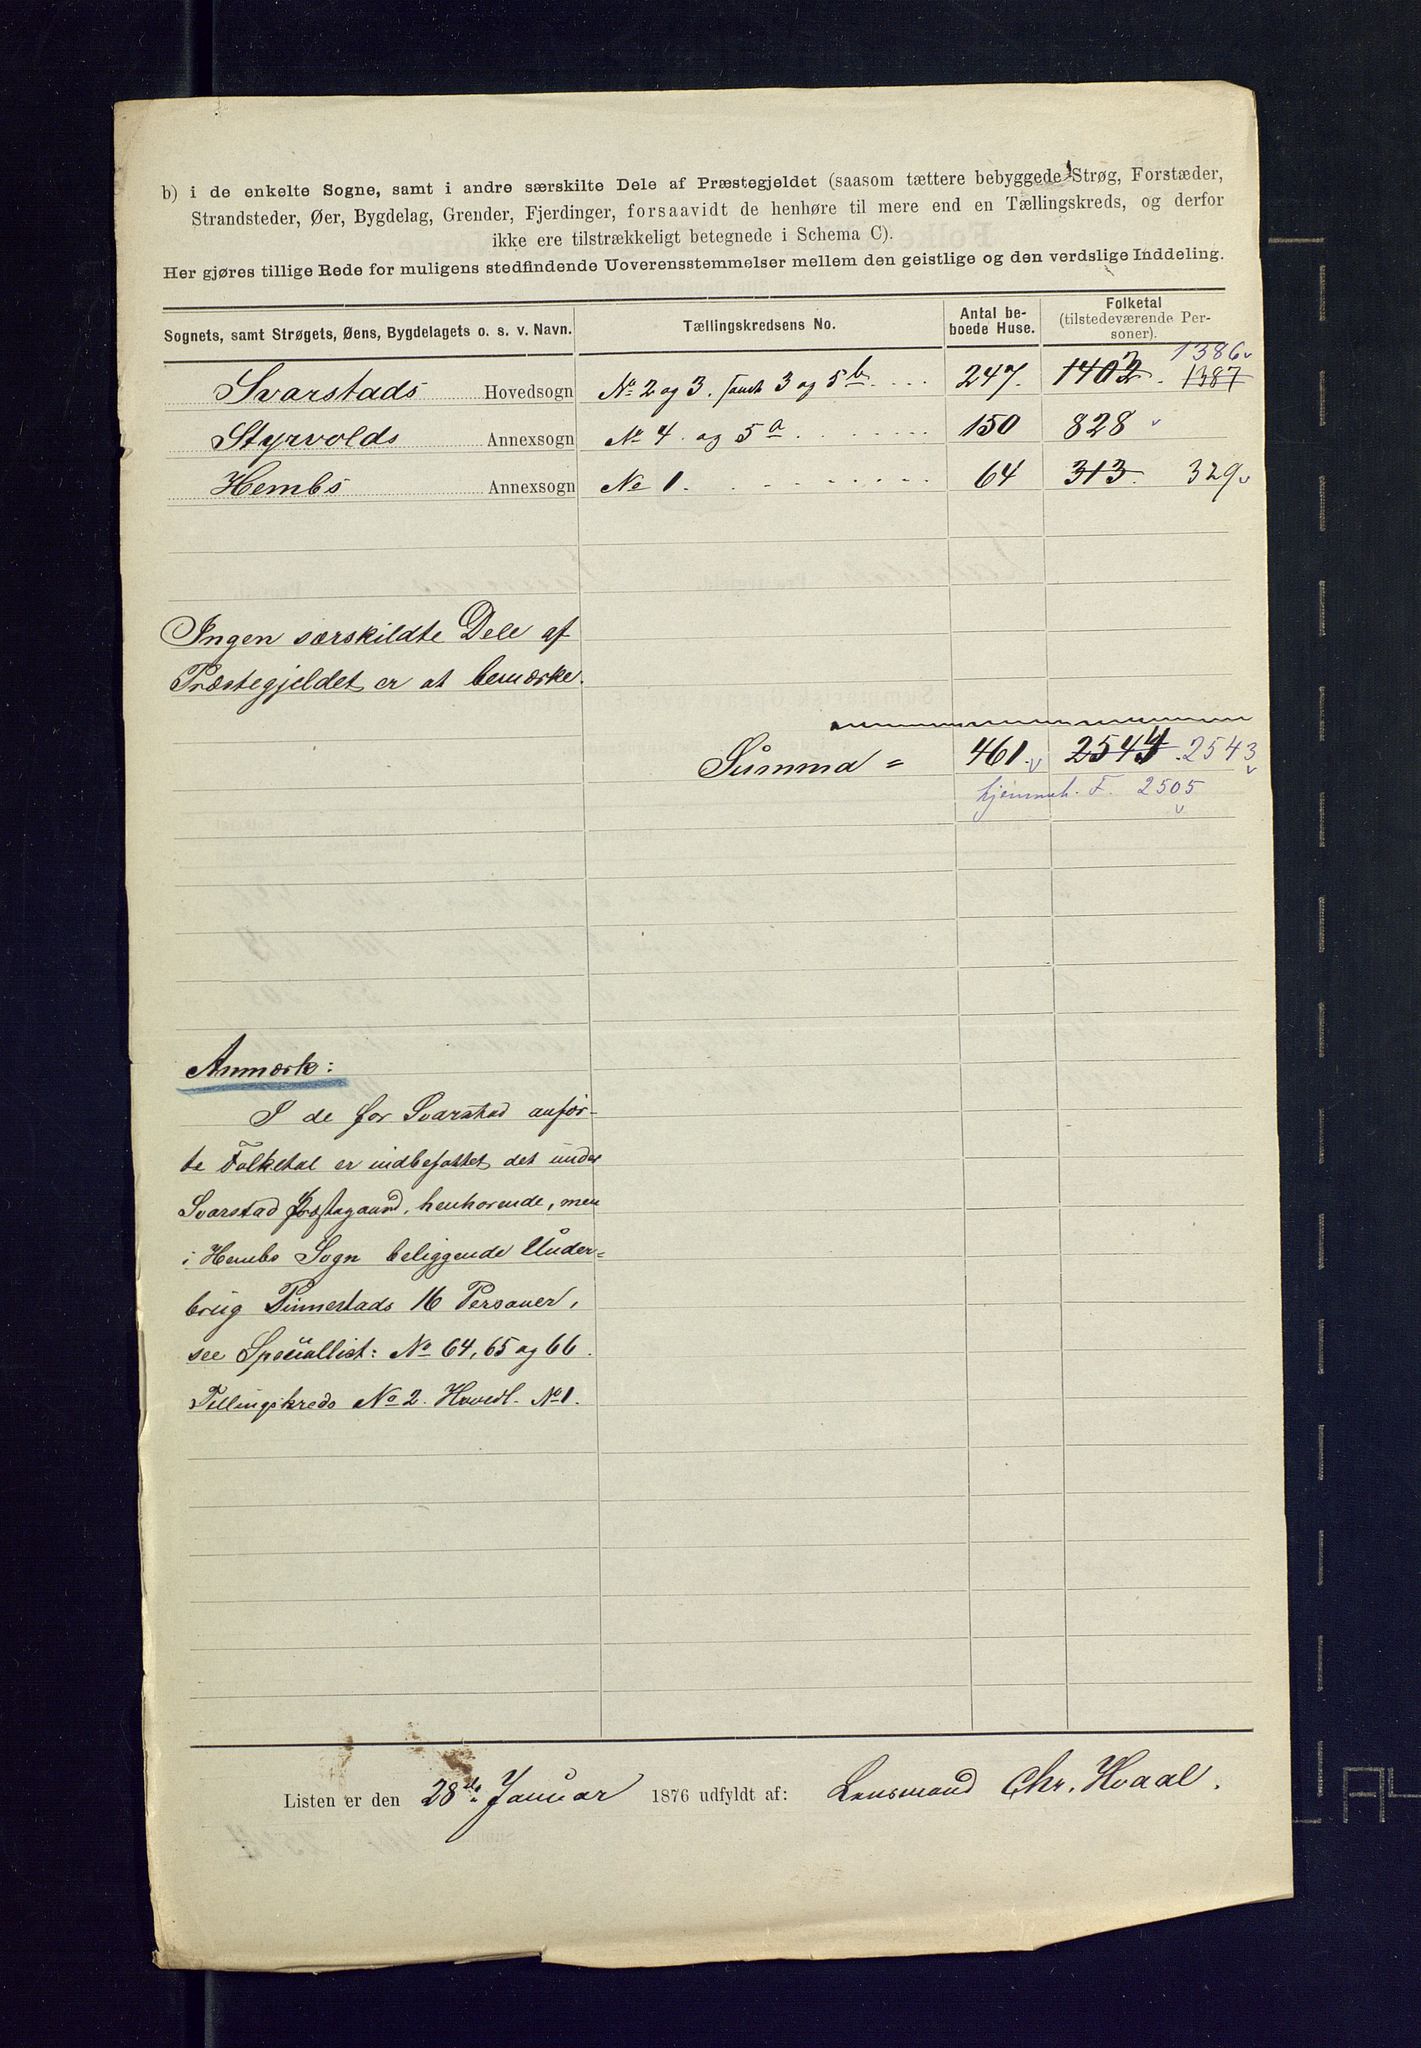 b) i de enkelte Sogne, samt i andre særskilte Dele af Præstegjeldet (saasom tættere bebyggede Strøg, Forstæder,
Strandsteder, Øer, Bygdelag, Grender, Fjerdinger, forsaavidt de henhøre til mere end en Tællingskreds, og derfor
ikke ere tilstrækkeligt betegnede i Schema C).
Her gjøres tillige Rede for muligens stedfindende Uoverensstemmelser mellem den geistlige og den verdslige Inddeling.
Sognets, samt Strøgets, Øens, Bygdelagets o. s. v. Navn. Tællingskredsens No. Antal beboede Huse. Folketal (tilstedeværende Personer).
1386
Svarstads Hovedsogn No 2 og 3. samt 3 og 5 b 247. 1402. 1387
Styrvolds Annexsogn No 4. og 5 a 150 828
Hembs Annexsogn No 1. 64 313. 329
Ingen særskildte Dele af
Præstegjeldet er at bemærke.
Summa = 461. 2544. 2543
hjemmeh. F. 2505
Anmærk:
I de for Svarstad anfør-
te Folketal er indbefattet det under
Svarstad Præstegaard, henhørende, men
i Hembs Sogn beliggende Under=
brug Pinnestads 16 Personer,
see Speciallist: No 64, 65 og 66.
Tellingskreds No 2. Hovedl. No 1.
Listen er den 28de Januar 1876 udfyldt af: Lensmand Chr. Hvaal.